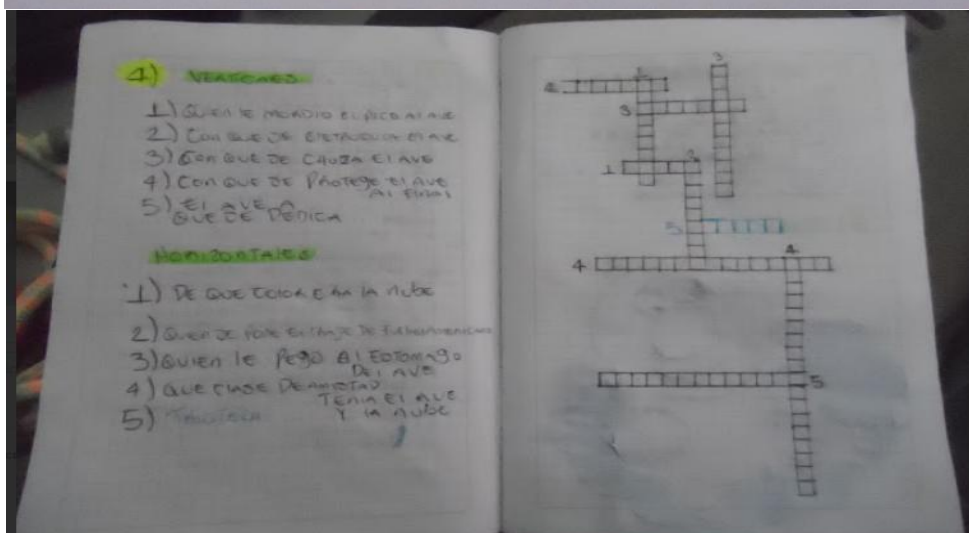 1)
1) QUIEN LE MORDIO EL PICO AL AVE
2) CON QUE SE EL AVE
3) CON QUE SE CAUZA EL AVE
4) CON QUE SE PROTEGE EL AVE
AL FINAL
5) EL AVE A
QUE SE DEDICA
HORIZONTALES
1) DE QUE COLOR ERA LA NUBE
2) QUIEN SE PONE EL TRAJE DE
3) QUIEN LE PEGO AL ESTOMAGO
DEL AVE
4) QUE CLASE DE AMISTAD
TENIA EL AVE
Y LA NUBE
5)
1
3
2
3
1
2
5
4
4
5